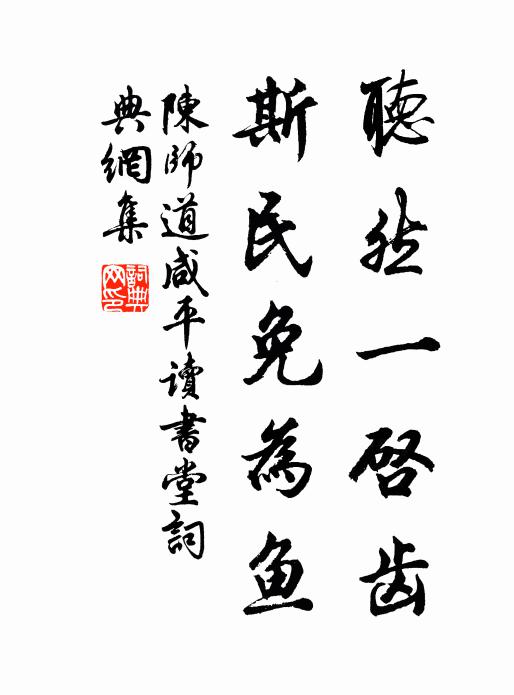 聽然一啓齿
斯民免為魚
陳師道咸平讀書堂詞
典網集
詞典網印